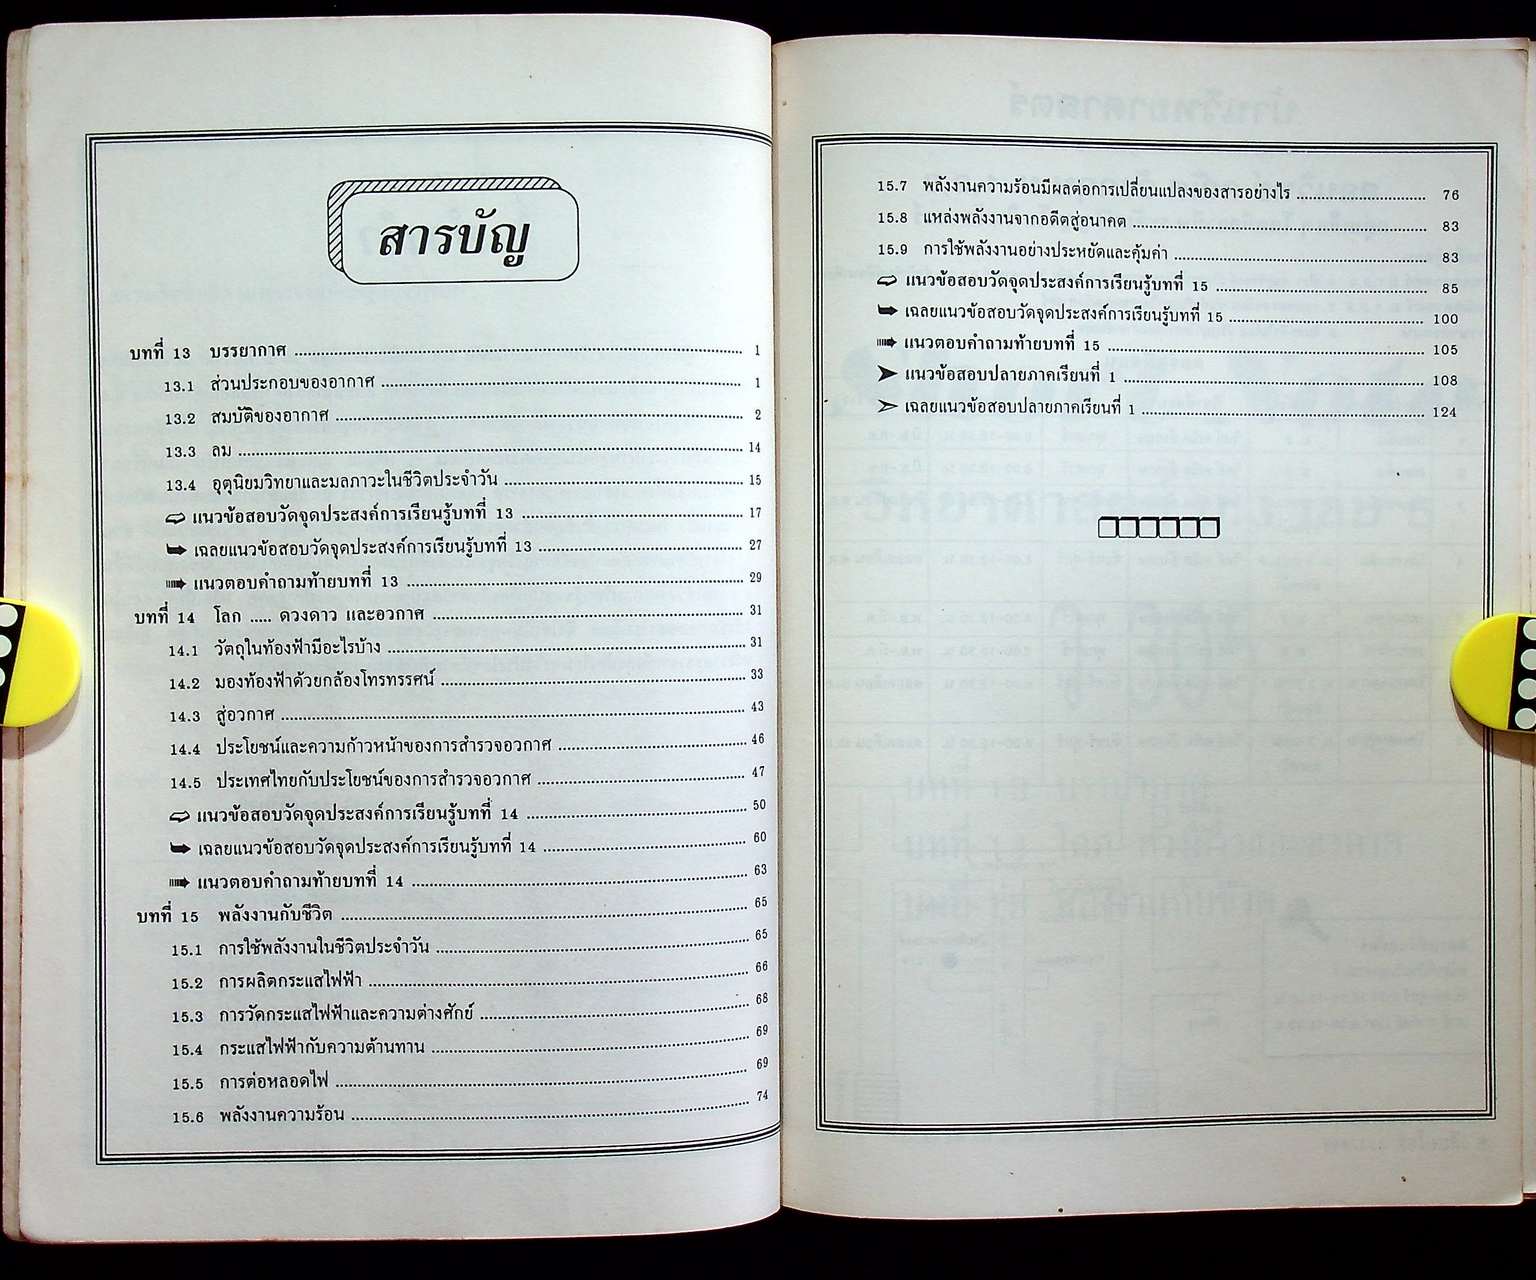 สารบัญ
บทที่ 13 บรรยากาศ ........ 1
13.1 ส่วนประกอบของอากาศ ........ 1
13.2 สมบัติของอากาศ ........ 2
13.3 ลม ........ 14
13.4 อุตุนิยมวิทยาและมลภาวะในชีวิตประจำวัน ........ 15
แนวข้อสอบวัดจุดประสงค์การเรียนรู้บทที่ 13 ........ 17
เฉลยแนวข้อสอบวัดจุดประสงค์การเรียนรู้บทที่ 13 ........ 27
แนวตอบคำถามท้ายบทที่ 13 ........ 29
บทที่ 14 โลก ..... ดวงดาว และอวกาศ ........ 31
14.1 วัตถุในท้องฟ้ามีอะไรบ้าง ........ 31
14.2 มองท้องฟ้าด้วยกล้องโทรทรรศน์ ........ 33
14.3 สู่อวกาศ ........ 43
14.4 ประโยชน์และความก้าวหน้าของการสำรวจอวกาศ ........ 46
14.5 ประเทศไทยกับประโยชน์ของการสำรวจอวกาศ ........ 47
แนวข้อสอบวัดจุดประสงค์การเรียนรู้บทที่ 14 ........ 50
เฉลยแนวข้อสอบวัดจุดประสงค์การเรียนรู้บทที่ 14 ........ 60
แนวตอบคำถามท้ายบทที่ 14 ........ 63
บทที่ 15 พลังงานกับชีวิต ........ 65
15.1 การใช้พลังงานในชีวิตประจำวัน ........ 65
15.2 การผลิตกระแสไฟฟ้า ........ 66
15.3 การวัดกระแสไฟฟ้าและความต่างศักย์ ........ 68
15.4 กระแสไฟฟ้ากับความต้านทาน ........ 69
15.5 การต่อหลอดไฟ ........ 69
15.6 พลังงานความร้อน ........ 74
15.7 พลังงานความร้อนมีผลต่อการเปลี่ยนแปลงของสารอย่างไร ........ 76
15.8 แหล่งพลังงานจากอดีตสู่อนาคต ........ 83
15.9 การใช้พลังงานอย่างประหยัดและคุ้มค่า ........ 83
แนวข้อสอบวัดจุดประสงค์การเรียนรู้บทที่ 15 ........ 85
เฉลยแนวข้อสอบวัดจุดประสงค์การเรียนรู้บทที่ 15 ........ 100
แนวตอบคำถามท้ายบทที่ 15 ........ 105
แนวข้อสอบปลายภาคเรียนที่ 1 ........ 108
เฉลยแนวข้อสอบปลายภาคเรียนที่ 1 ........ 124